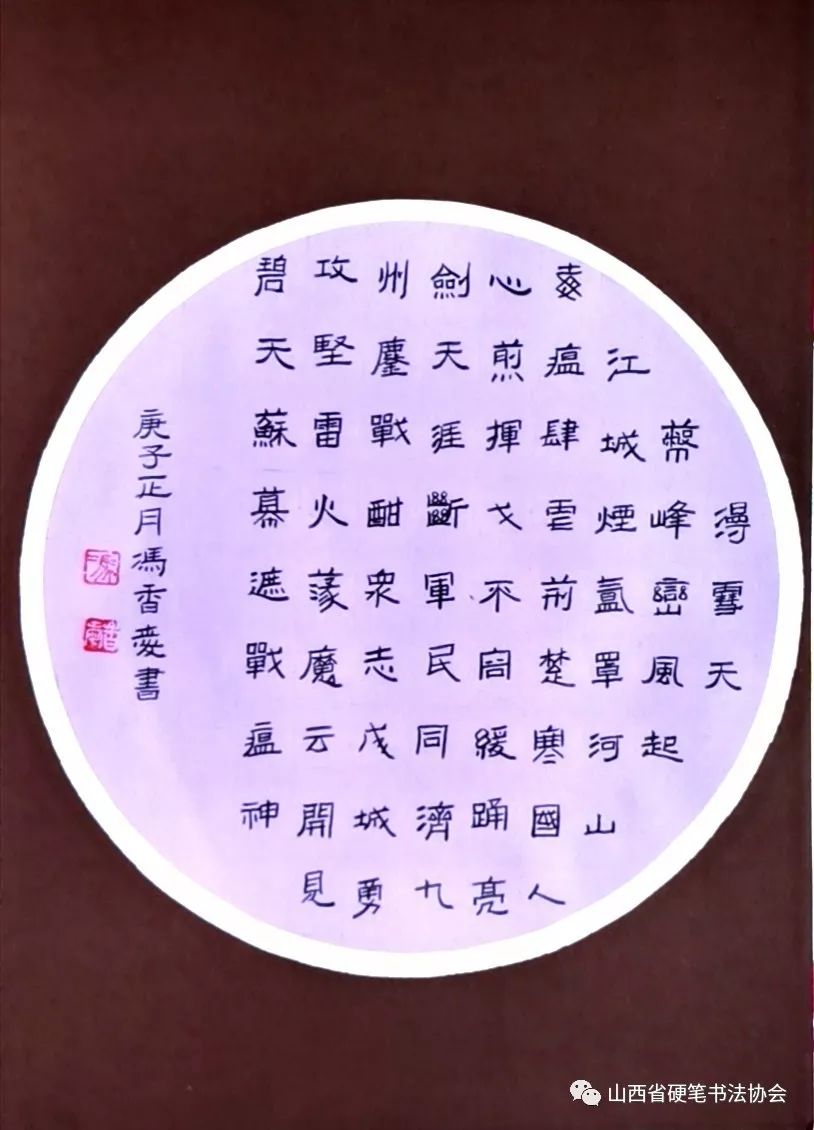 漫雪天
蔽峰巒風起
江城煙氳罩河山
毒瘟肆虐荊楚寒國人
心煎揮戈不容緩踊亮
劍天涯斷軍民同濟九
州鏖戰酣衆志成城勇
攻堅雷火蕩魔云開見
碧天蘇幕遮戰瘟神
庚子正月馮香愛書
山西省硬笔书法协会